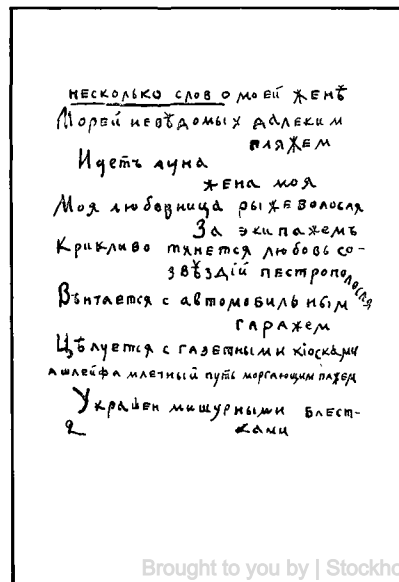 несколько слов о моей женѣ
Морей невѣдомых далеким
пляжем
Идетъ луна
жена моя
Моя любовница рыжеволосая
За экипажемъ
Крикливо тянется любовь со-
звѣздій пестрополосая
Вѣнчается с автомобильным
гаражем
Цѣлуется с газетными кіосками
а шлейфа млечный путь моргающим пажем
Украшен мишурными блест-
2 ками
Brought to you by | Stockho